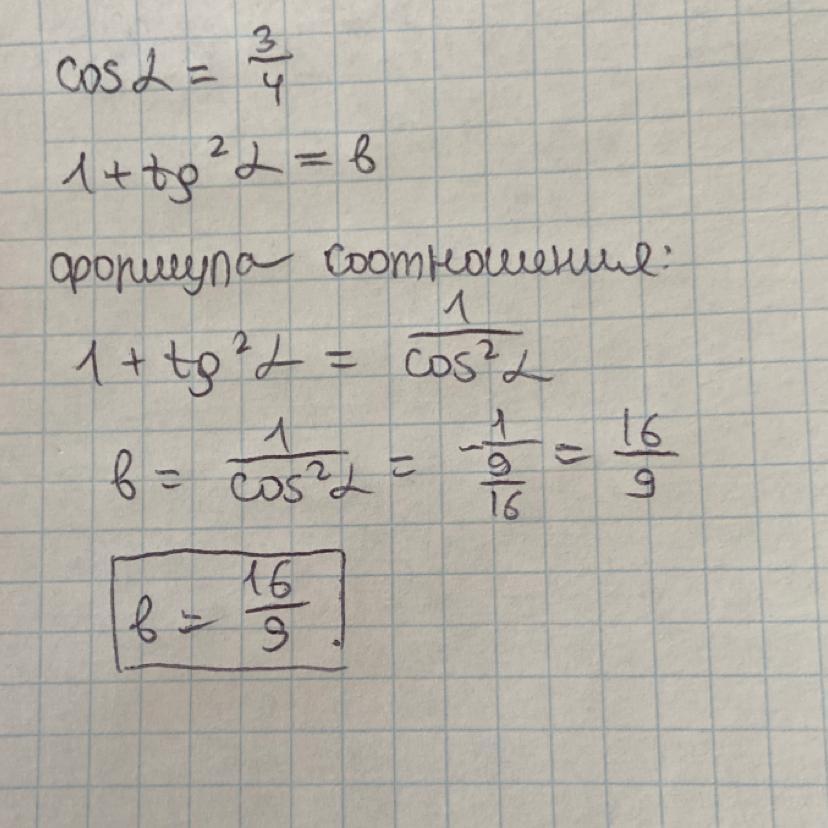 cos α = 3/4
1 + tg² α = в
формула соотношения:
1 + tg² α = 1/cos² α
в = 1/cos² α = 1/(9/16) = 16/9
в = 16/9.